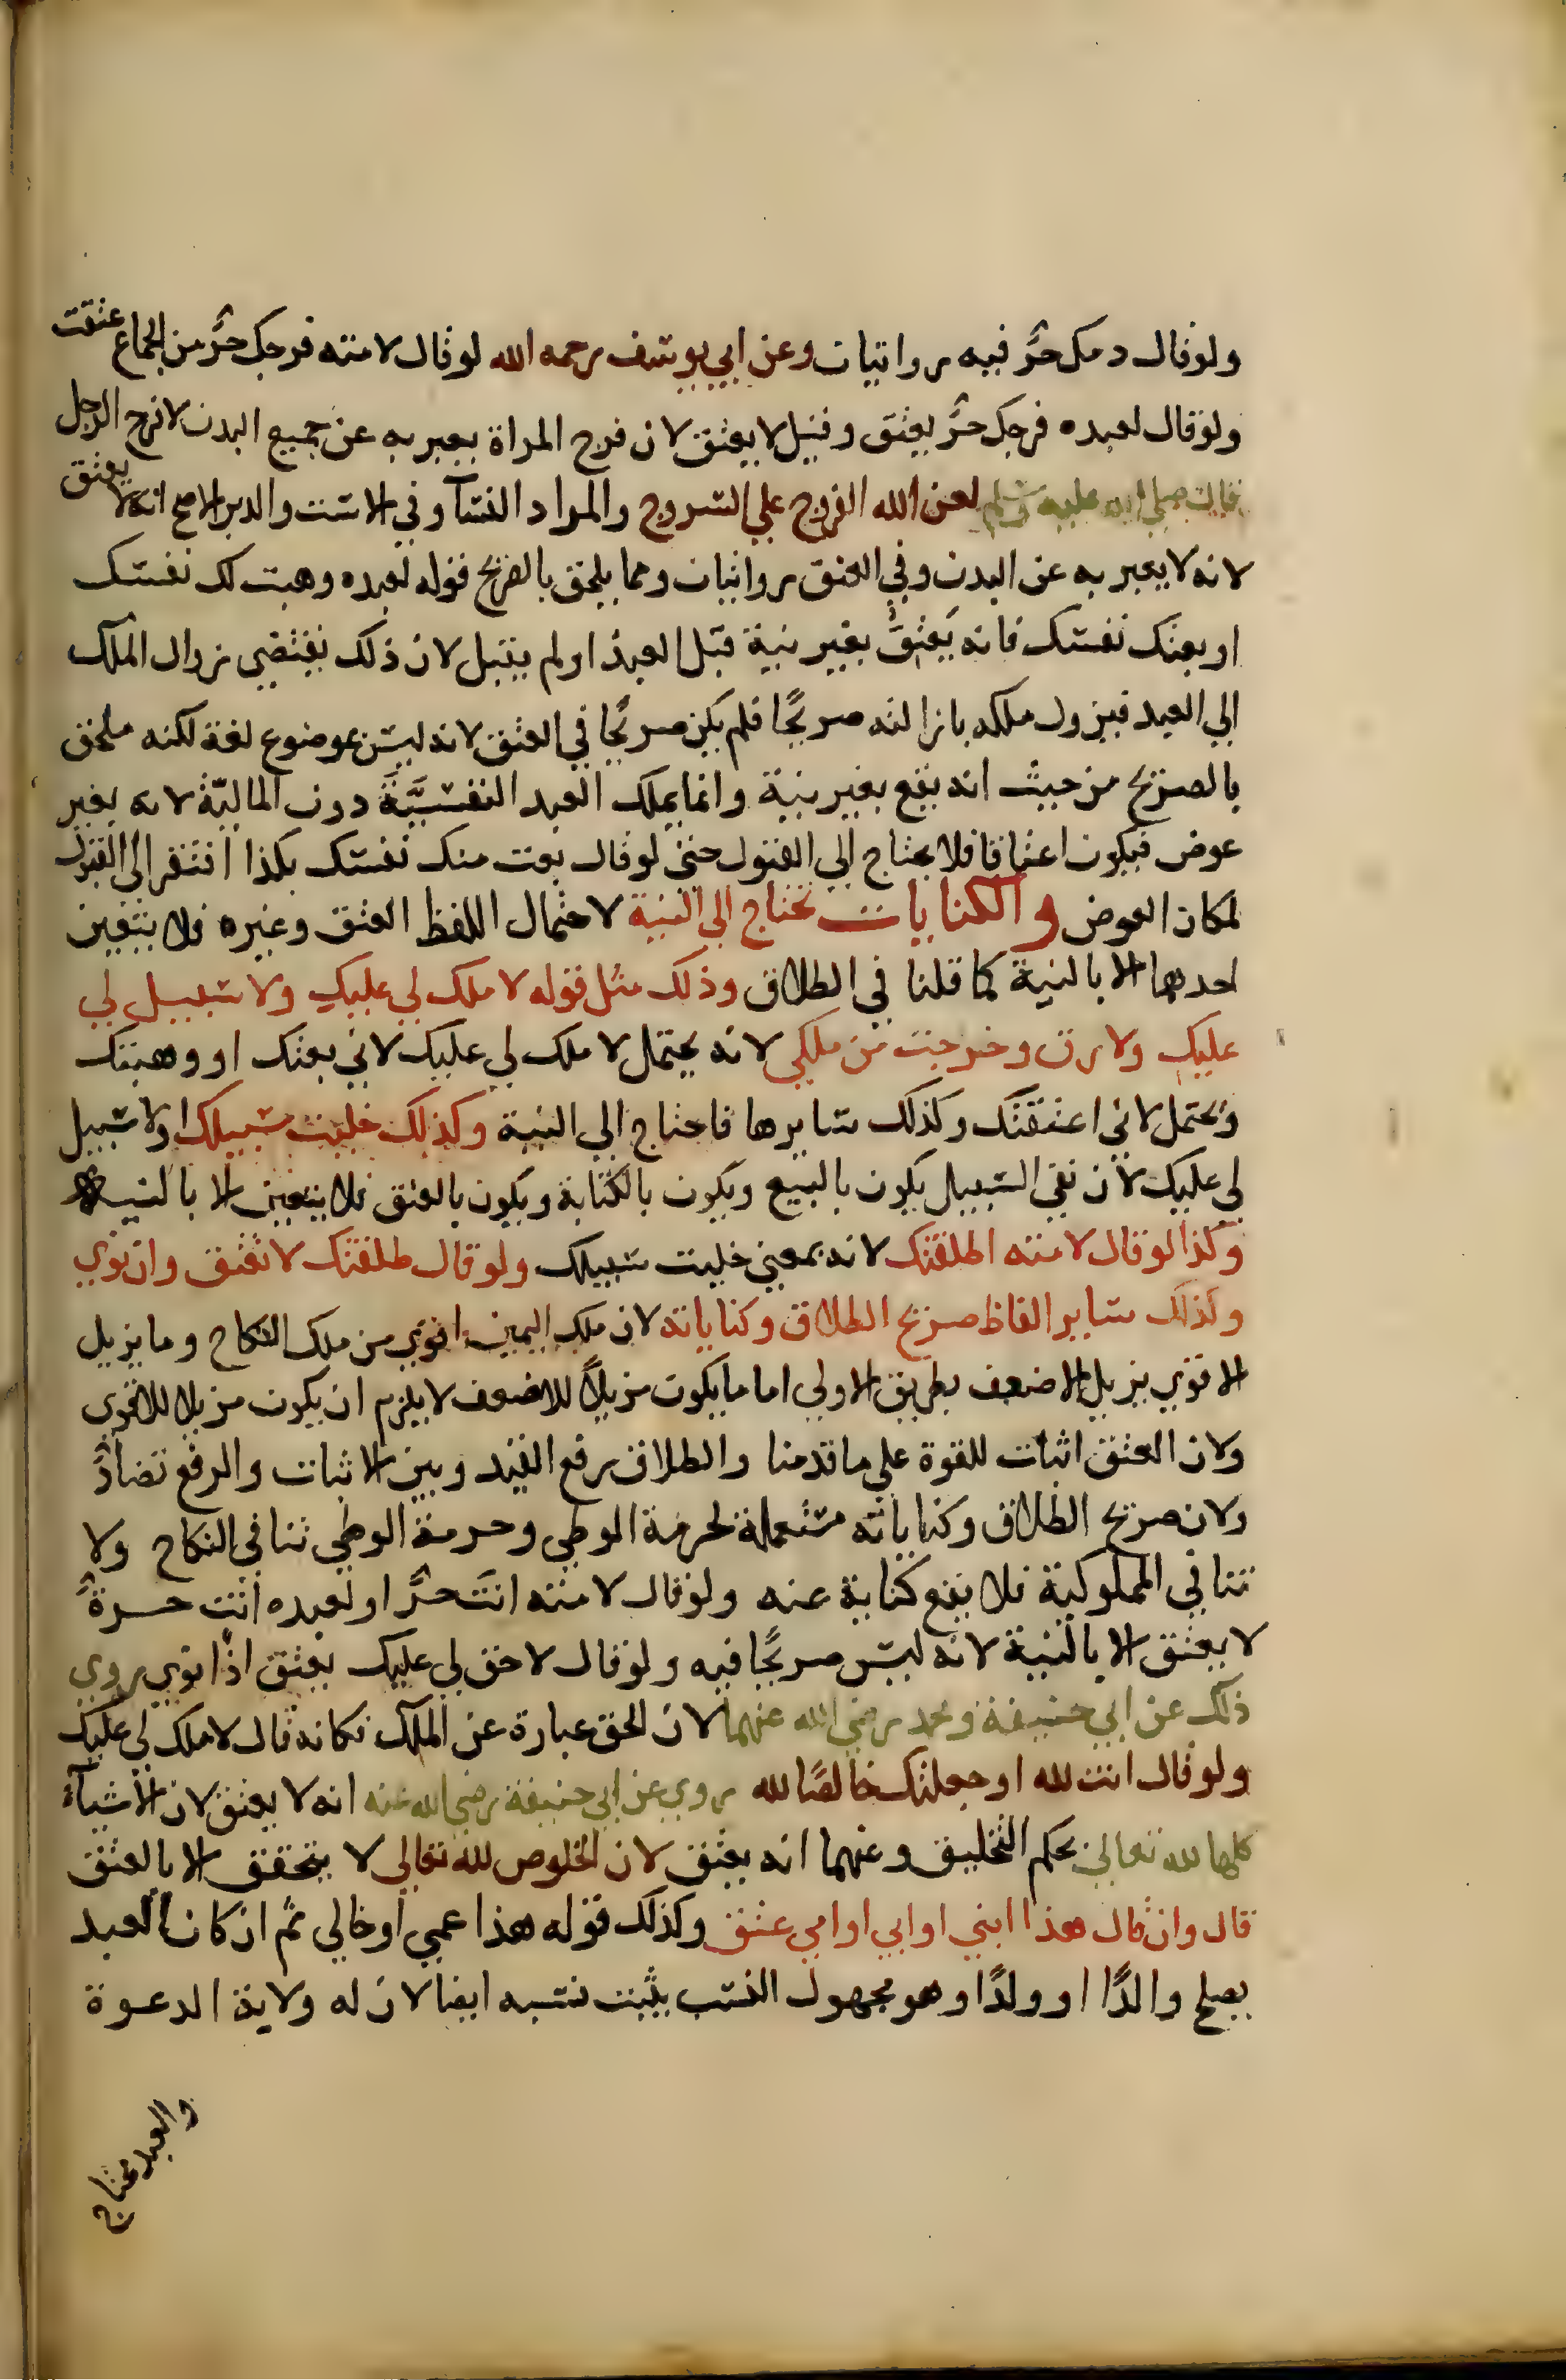 ولو قال دمك حرٌّ فيه روايتان وعن ابي يوسف رحمه الله لو قال لامته فرجك حرٌّ من الجماع عتقت
ولو قال لعبده فرجك حرٌّ يعتق وقيل لا يعتق لان فرج المراة يعبر به عن جميع البدن لا فرج الرجل
قال صلى الله عليه وسلم لعن الله الفروج علي السروج والمراد النسآ وفي الاست والدبر الاصح انه لا يعتق
لانه لا يعبر به عن البدن وفي العنق روايتان ومما يلحق بالصريح قوله لعبده وهبت لك نفسك
او بعتك نفسك فانه يَعتِقُ بغير نية قبل العبد او لم يقبل لان ذلك يقتضي زوال الملك
الي العبد فيزول ملكه بازالته صريحًا فلم يكن صريحًا في العتق لانه ليس بموضوع لغة لكنه ملحق
بالصريح من حيث انه يقع بغير نية وانما يملك العبد النفسيَّةَ دون الماليّة لانه بغير
عوض فيكون اعتاقا فلا يحتاج الي القبول حتى لو قال بعت منك نفسك بكذا افتقر الى القبول
لمكان العوض والكنايات تحتاج الى النية لاحتمال اللفظ العتق وغيره فلا يتعين
احدهما الا بالنية كما قلنا في الطلاق وذلك مثل قوله لا ملك لي عليك ولا سبيل لي
عليك ولا رق وخرجت من ملكي لانه يحتمل لا ملك لي عليك لاني بعتك او وهبتك
ويحتمل لاني اعتقتك وكذلك سايرها فاحتاج الي النية وكذلك خليت سبيلك او لا سبيل
لي عليك لان نفي السبيل يكون بالبيع ويكون بالكتابة ويكون بالعتق فلا يتعين الا بالنية
وكذا لو قال لامته اطلقتك لانه بمعني خليت سبيلك ولو قال طلقتك لا تعتق وان نوي
وكذلك ساير الفاظ صريح الطلاق وكناياته لان ملك اليمين اقوي من ملك النكاح وما يزيل
الاقوي يزيل الاضعف بطريق الاولي اما ما يكون مزيلاً للاضعف لا يلزم ان يكون مزيلا للاقوي
ولان العتق اثبات للقوة على ما قدمنا والطلاق رفع القيد وبين الاثبات والرفع تضادٌّ
ولان صريح الطلاق وكناياته مستعملة لحرمة الوطي وحرمة الوطي تنافي النكاح ولا
تنافي المملوكية فلا يقع كناية عنه ولو قال لامته انتَ حرٌّ او لعبده انت حرةٌ
لا يعتق الا بالنية لانه ليس صريحًا فيه ولو قال لا حق لي عليك يعتق اذا نوي روي
ذلك عن ابي حنيفة ومحمد رضي الله عنهما لان الحق عبارة عن الملك فكانه قال لا ملك لي عليك
ولو قال انت لله او جعلتك خالصًا لله روي عن ابي حنيفة رضي الله عنه انه لا يعتق لان الاشيآء
كلها لله تعالى بحكم التخليق وعنهما انه يعتق لان الخلوص لله تعالى لا يتحقق الا بالعتق
قال وان قال هذا ابني او ابي او امي عتق وكذلك قوله هذا عمي او خالي ثم ان كان العبد
يصلح والدًا او ولدًا وهو مجهول النسب يثبت نسبه ايضا لان له ولاية الدعوة
والعبد محتاج